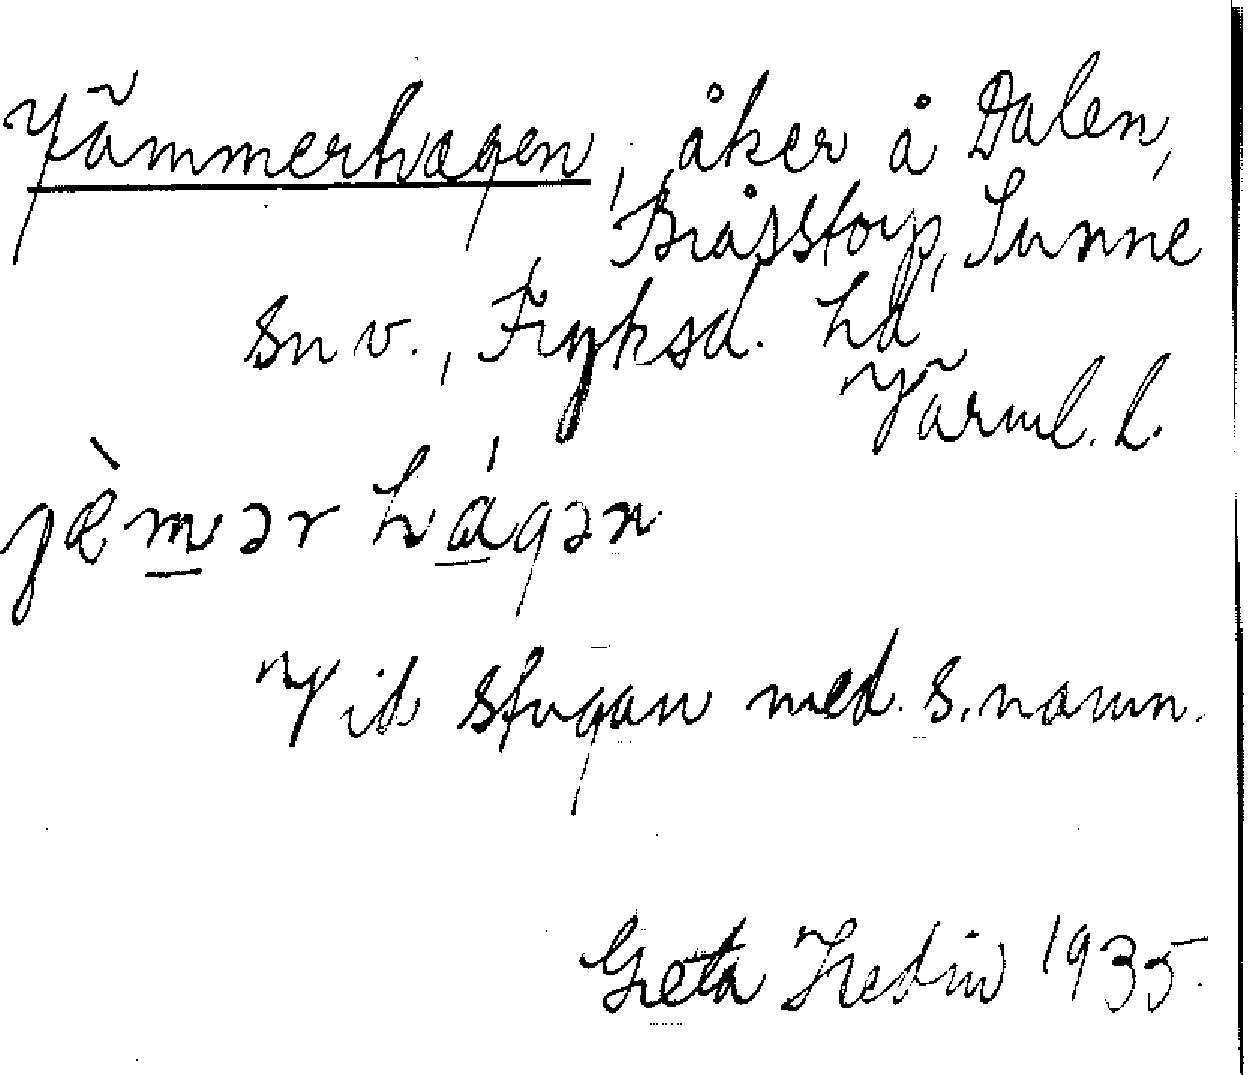 Jämmerhagen, åker å Dalen,
Bråstorp, Sunne
sn v., Fryksd. hd
Värml. l.
jæ̀mər hágən
Vid stugan med s. namn.
Greta Hedin 1935.